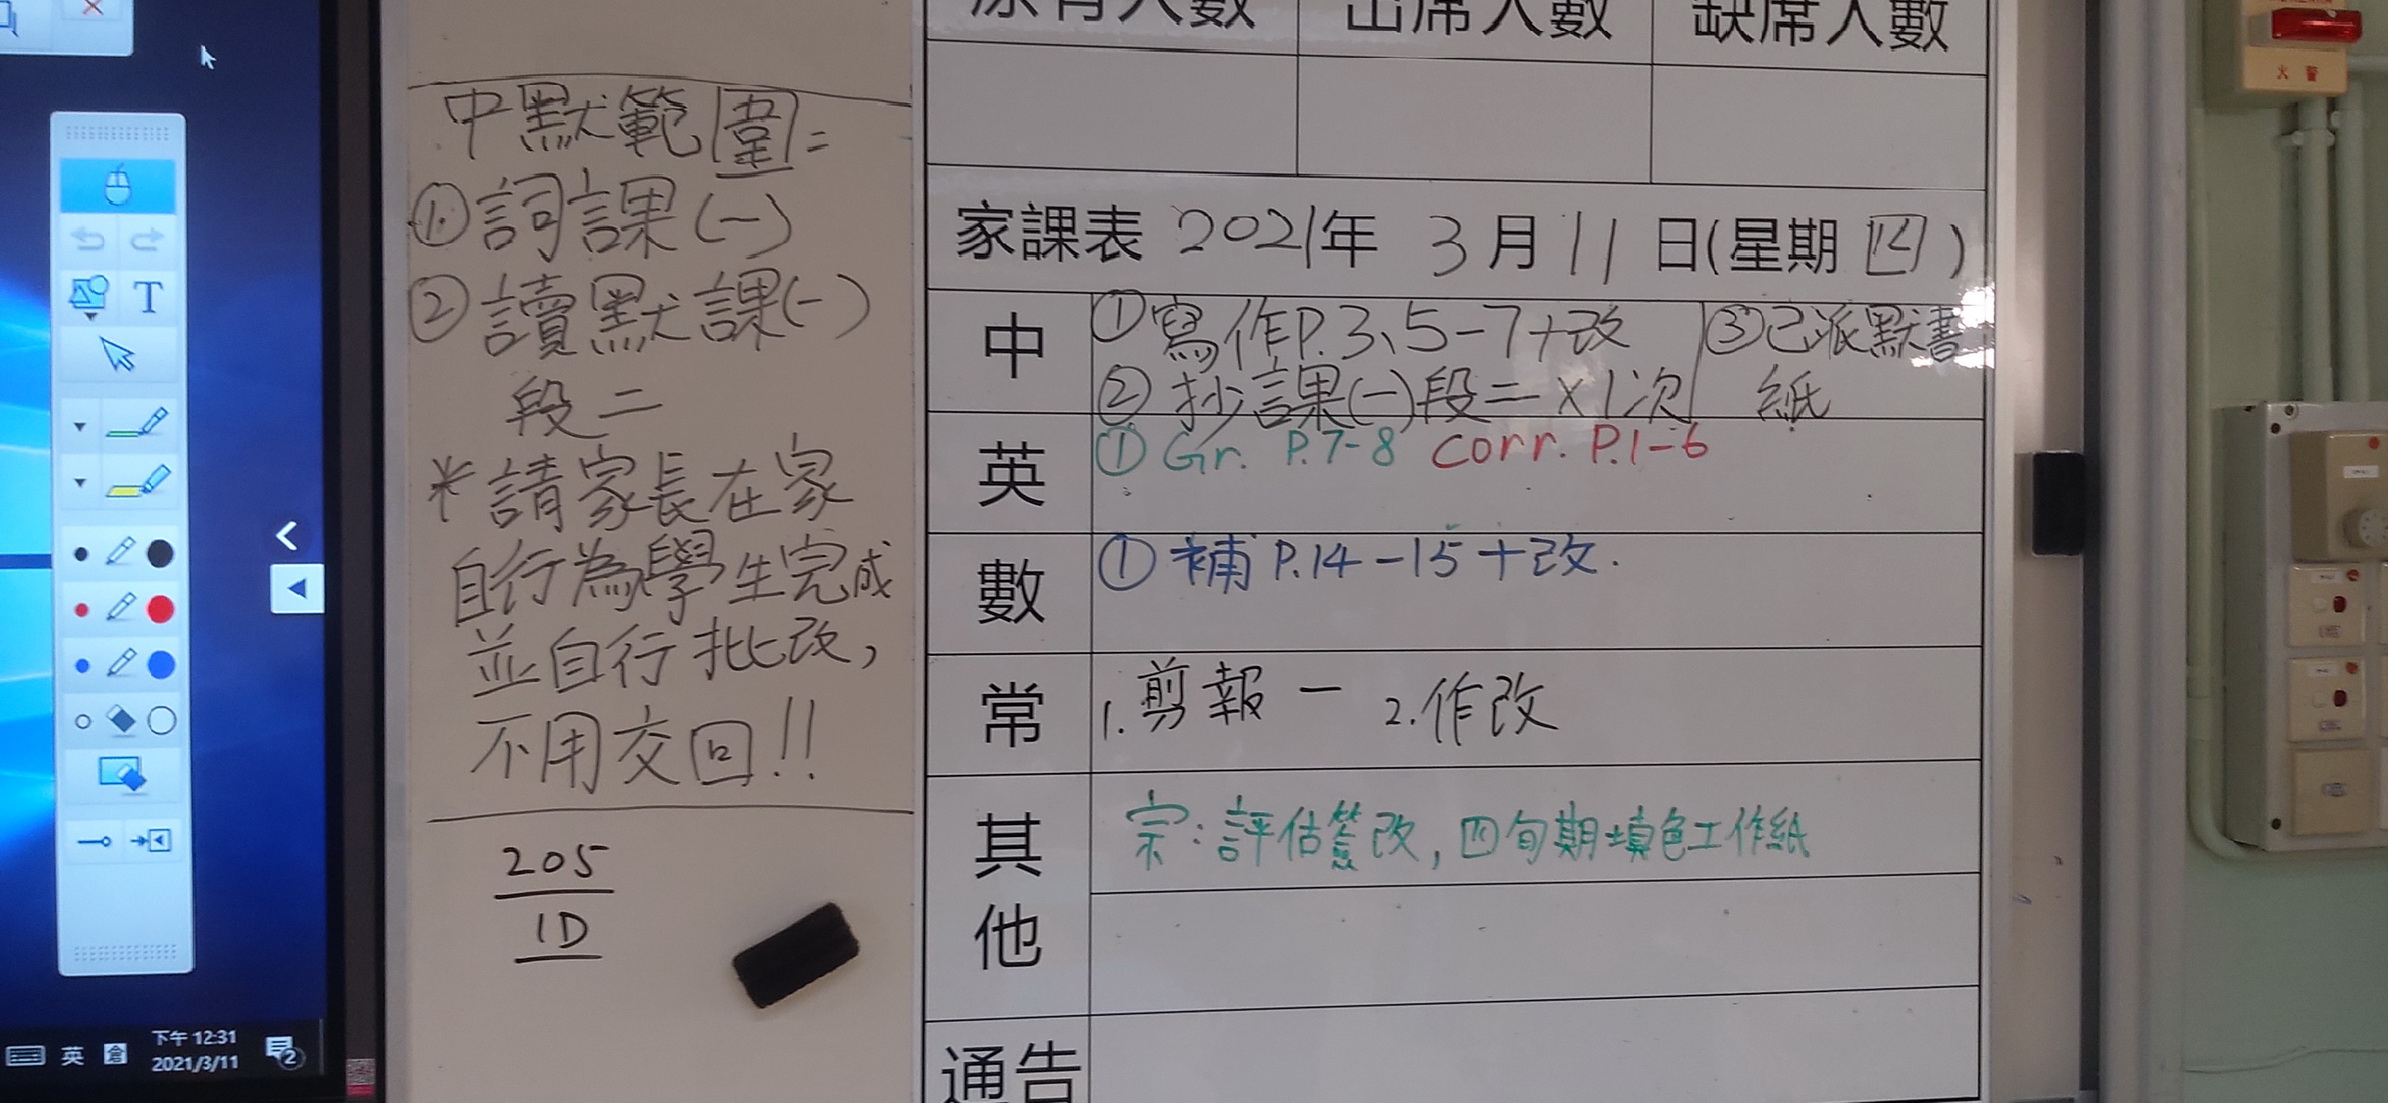 原有人數 出席人數 缺席人數
中默範圍=
①詞課(一)
②讀默課(一)
段二
*請家長在家
自行為學生完成
並自行批改,
不用交回!!
205
1D
家課表 2021年 3月11日(星期四)
中 ①寫作P.3、5-7+改 ③已派默書
②抄課(一)段二×1次 紙
英 ①Gr. P.7-8 corr. P.1-6
數 ①補P.14-15+改.
常 1.剪報一 2.作改
其他 宗:評估簽改,四旬期填色工作紙
通告
T
英 倉
下午 12:31
2021/3/11
2
火警